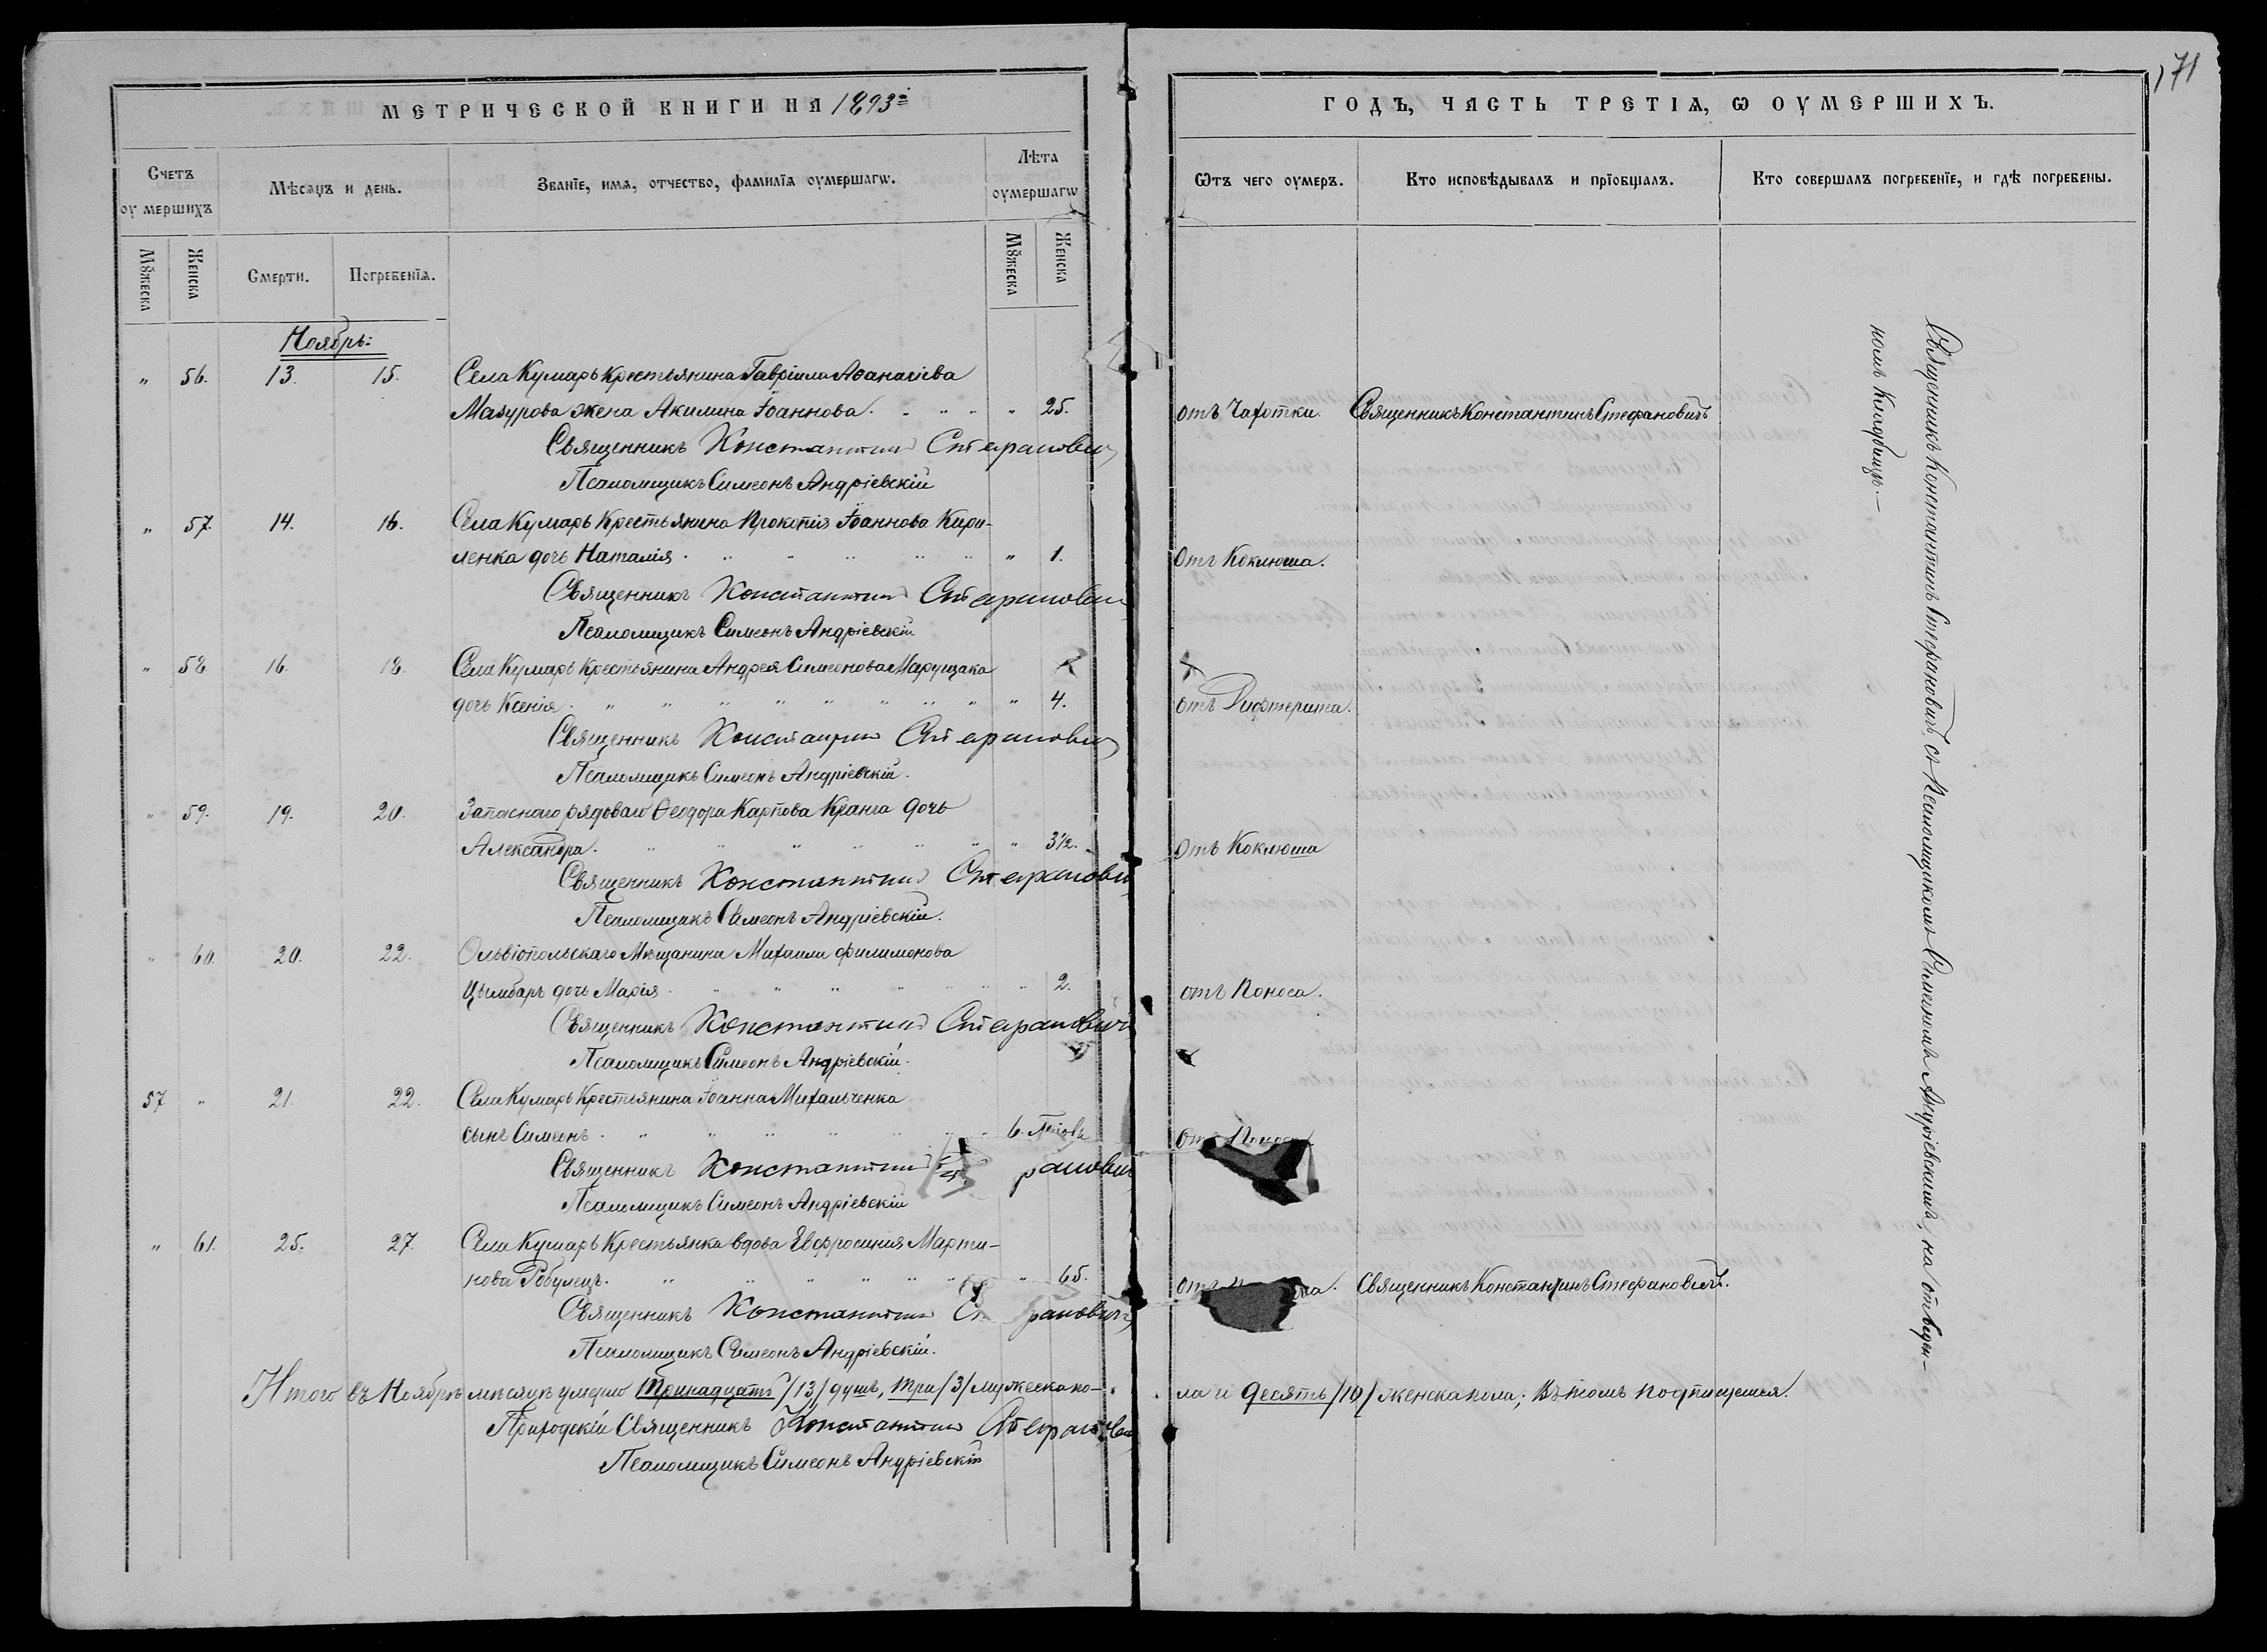 171
МЕТРИЧЕСКОЙ КНИГИ НА 1893й
ГОДЪ, ЧАСТЬ ТРЕТІѦ, Ѡ ОУМЕРШИХЪ.
Счетъ оумершихъ
Мѣсяцъ и день.
Званїе, имѧ, отчество, фамилїѧ оумершагѡ.
Лѣта оумершагѡ
Ѿтъ чего оумеръ.
Кто исповѣдывалъ и прїобщалъ.
Кто совершалъ погребенїе, и гдѣ погребены.
Мꙋжеска
Женска
Смерти.
Погребенїѧ.
Мꙋжеска
Женска
Ноябрь:
" 56. 13. 15. Села Кумарь Крестьянина Гавріила Аѳанасіева
Мазурова жена Акилина Іоаннова. " 25. отъ Чахотки. Священникъ Константинъ Стефановичъ
Священникъ Константинъ Стефанович
Псаломщикъ Симеонъ Андріевскій
" 57. 14. 16. Села Кумарь Крестьянина Прокопія Іоаннова Кири-
ленка дочь Наталія. " 1. Отъ Коклюша.
Священникъ Константинъ Стефанович
Псаломщикъ Симеонъ Андріевскій
" 58 16. 18. Села Кумарь Крестьянина Андрея Симеонова Марущака
дочь Ксенія. " 4. отъ Дифтерита.
Священникъ Константин Стефанович
Псаломщикъ Симеонъ Андріевскій.
" 59. 19. 20. Запаснаго рядоваго Ѳеодора Карпова Кранга дочь
Александра. " 3½. Отъ Коклюша
Священникъ Константинъ Стефанови
Псаломщикъ Симеонъ Андріевскій.
" 60. 20. 22. Ольвіопольскаго Мѣщанина Михаила Филимонова
Цымбаръ дочь Марія. " 2. отъ Поноса.
Священникъ Константинъ Стефановичъ
Псаломщикъ Симеонъ Андріевскій.
57 " 21. 22. Села Кумарь Крестьянина Іоанна Михальченка
сынъ Симеонъ. 6.
Священникъ Константинъ рановичъ
Псаломщикъ Симеонъ Андріевскій
" 61. 25. 27. Села Кумарь Крестьянка вдова Евфросинія Марти-
нова Робулецъ. " 65. отъ Священникъ Константинъ Стефановичъ.
Священникъ Константинъ Ст фановичъ
Псаломщикъ Симеонъ Андріевскій.
Итого въ Ноябрѣ мѣсяцѣ умерло тринадцать /13/ душъ, три /3/ мужеска по-
ла и десять /10/ женска пола; въ томъ подпишемся.
Приходскій Священникъ Константинъ Стефанович
Псаломщикъ Симеонъ Андріевскій
Священникъ Константинъ Стефановичъ съ Псаломщикомъ Симеономъ Андріевскимъ, на отведен-
номъ Кладбищѣ.—